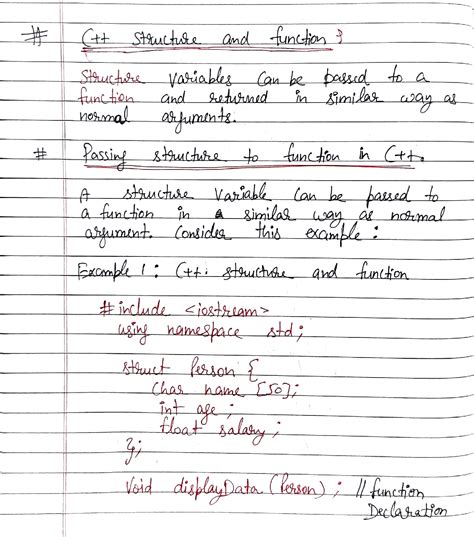 # C++ Structure and function }
Structure variables can be passed to a
function and returned in similar way as
normal arguments.
# Passing structure to function in C++.
A structure variable can be passed to
a function in a similar way as normal
argument. Consider this example :
Example 1 : C++: structure and function
# include <iostream>
using namespace std ;
struct Person {
Char name [50];
int age ;
float salary ;
};
Void displayData (Person) ; // function
Declaration